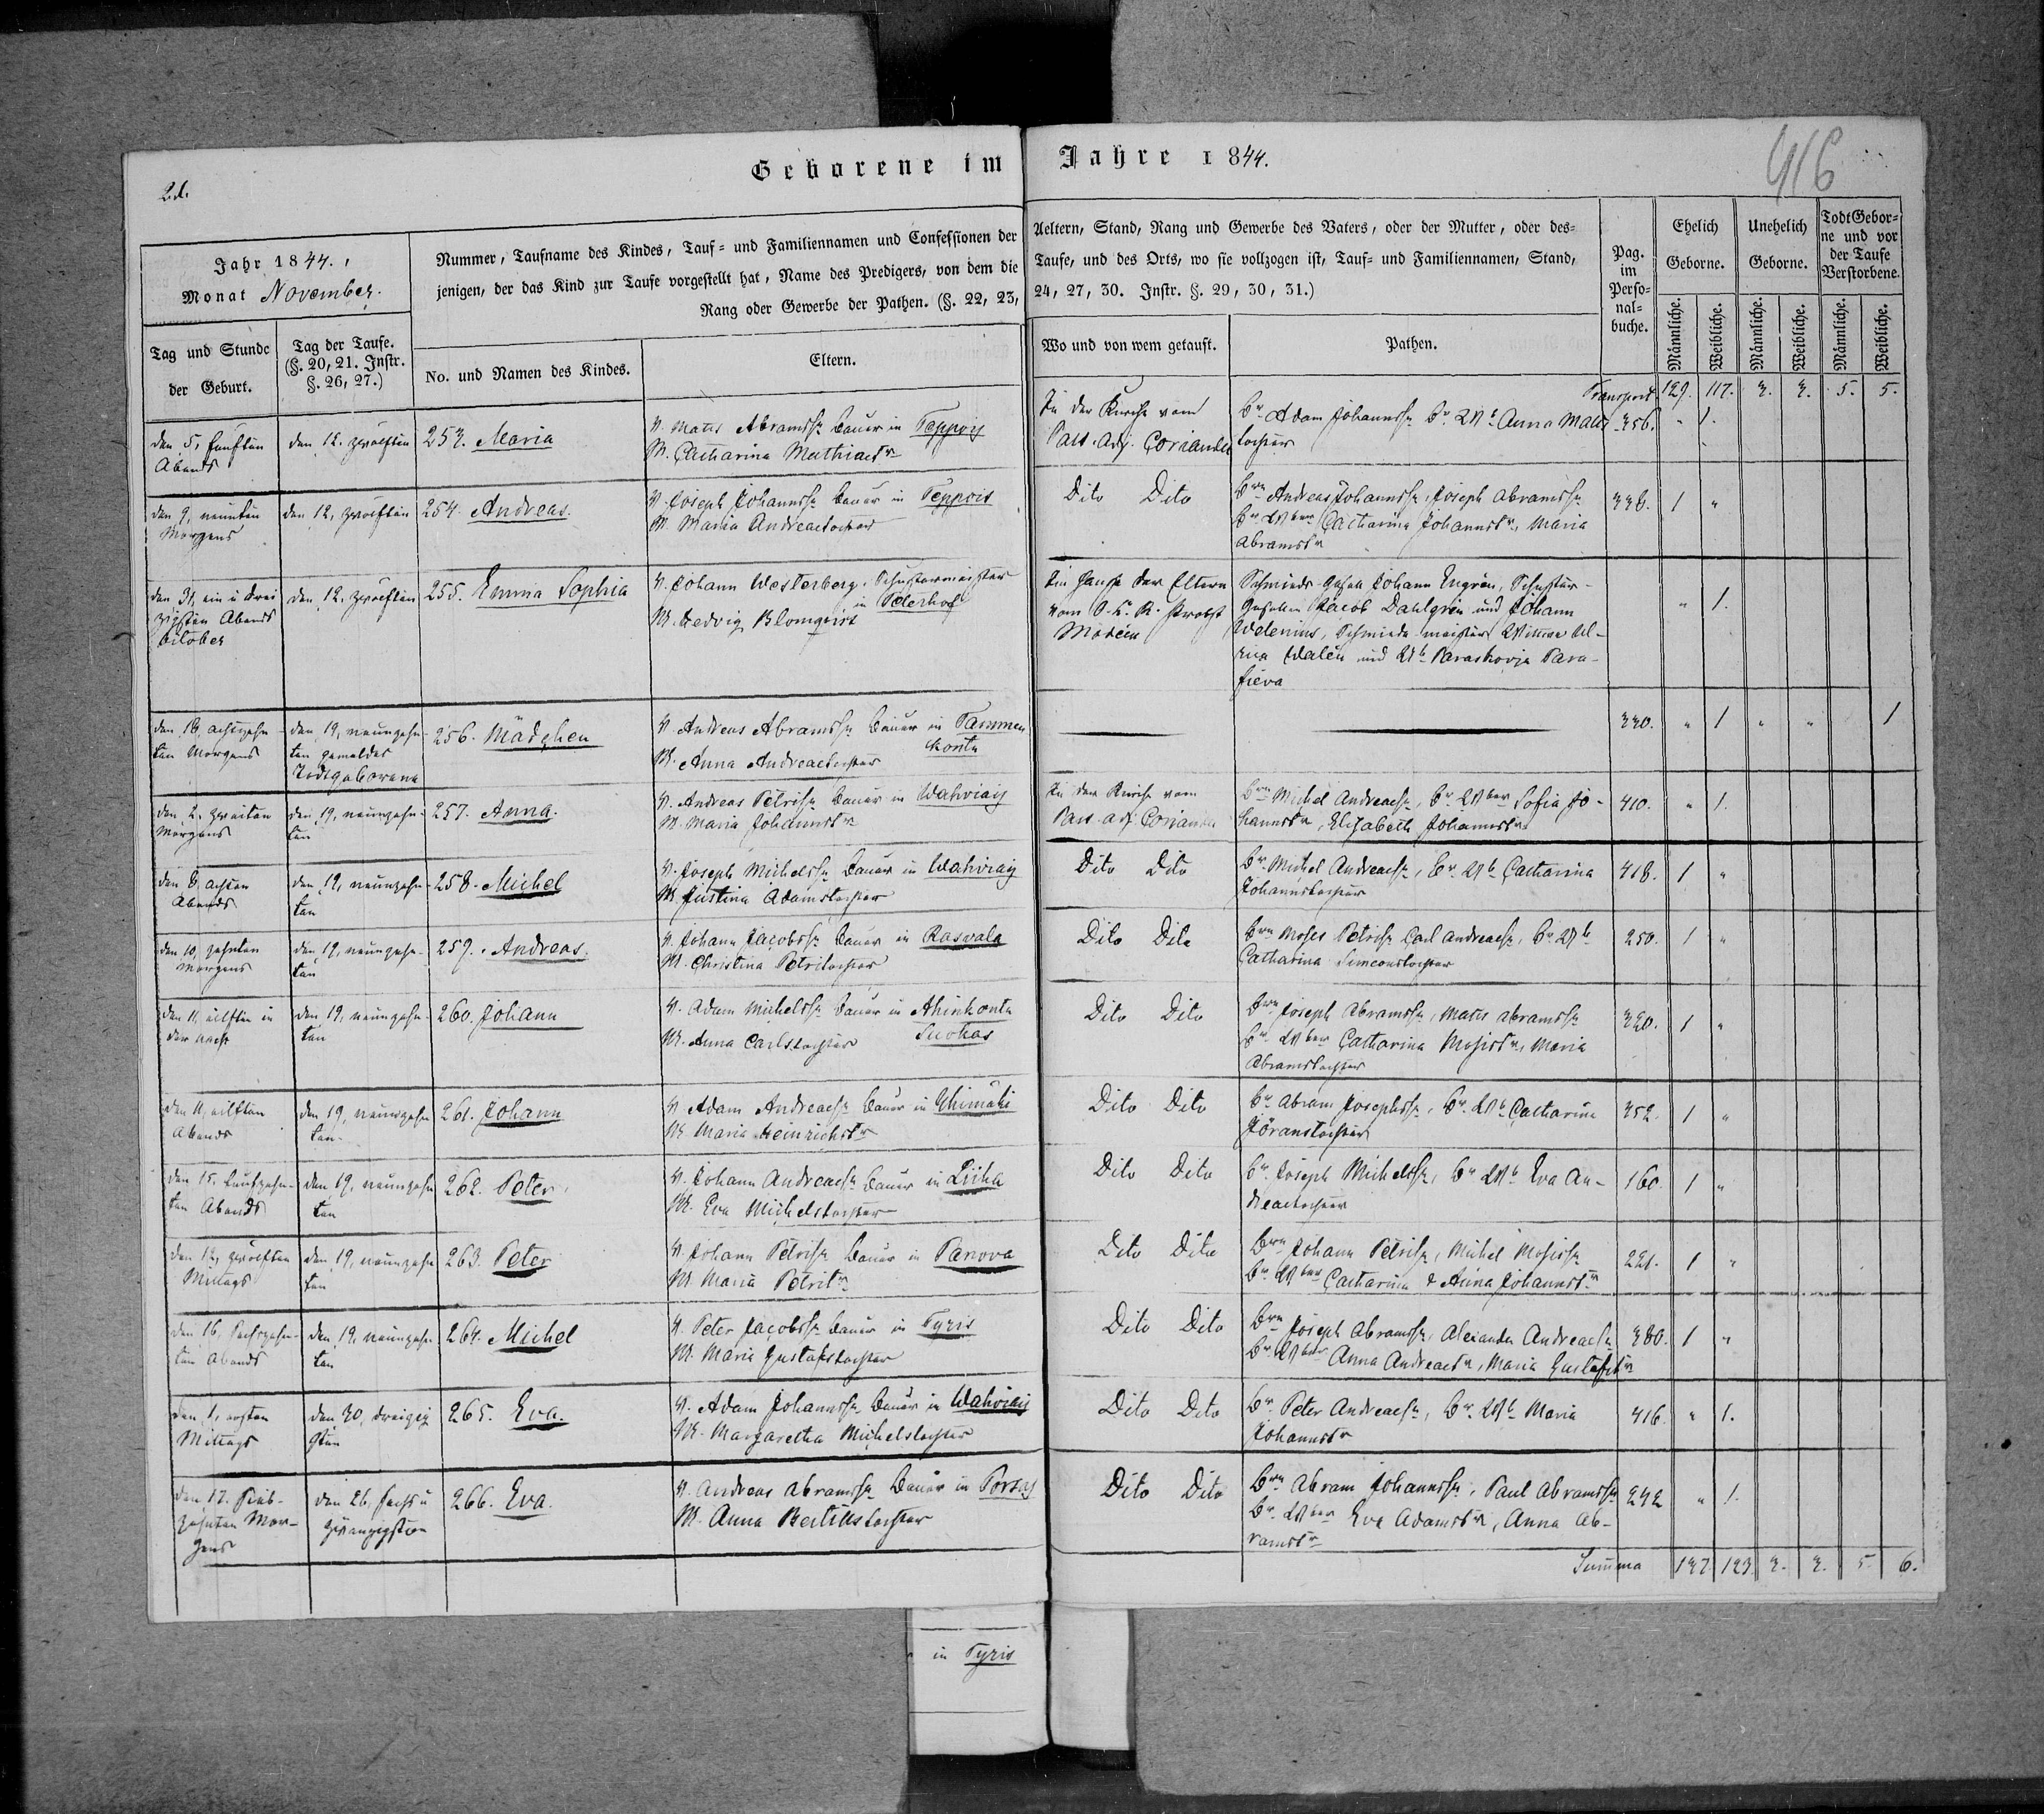 Geborene im Jahre 1844.
416
2d.
Jahr 1844.,
Monat November.
Tag und Stunde
der Geburt.
Tag der Taufe.
(§. 20, 21. Instr.
§. 26, 27.)
Nummer, Taufname des Kindes, Tauf- und Familiennamen und Confessionen der Aeltern, Stand, Rang und Gewerbe des Vaters, oder der Mutter, oder des=
jenigen, der das Kind zur Taufe vorgestellt hat, Name des Predigers, von dem die Taufe, und des Orts, wo sie vollzogen ist, Tauf- und Familiennamen, Stand,
Rang oder Gewerbe der Pathen. (§. 22, 23, 24, 27, 30. Instr. §. 29, 30, 31.)
No. und Namen des Kindes.
Eltern.
Wo und von wem getauft.
Pathen.
Pag.
im
Perso=
nal=
buche.
Ehelich
Geborne.
Unehelich
Geborne.
Todt Gebor=
ne und vor
der Taufe
Verstorbene.
Männliche. Weibliche. Männliche. Weibliche. Männliche. Weibliche.
Transport 129. 117. 3. 3. 5. 5.
den 5, fünften
Abends
den 12. zwölften
253. Maria
V. Mats Abramssn Bauer in Teppois
M. Catharina Mathiaetr
In der Kirche vom
Past. Adj. Coriander
Br Adam Johannssn Br Wb Anna Mats
tochter
356. " 1.
den 9, neunten
Morgens
den 12, zwölften
254. Andreas.
V. Joseph Johannssn Bauer in Teppois
M. Maria Andreaetochter
Dito Dito
Brn Andreas Johannssn, Joseph Abramssn
Br Wber Catharina Johannstr, Maria
Abramstr
338. 1 "
den 31, ein u drei
zigsten Abends
October
den 12. zwölften
255. Emma Sophia
V. Johann Westerberg. Schustermeister
in Peterhof
M. Hedvig Blomqvist
Im Hause der Eltern
vom Probst
Schmieds Gesell Johann Engrén, Schuster-
Gesellen Jacob Dahlgrén und Johann
Welenius, Schmiede meisters Wittwe Ul-
rica Walén und Wb Paraskovja Para-
fieva
" 1.
den 18, achtzehn-
ten Morgens
den 19, neunzehn-
ten gemeldet
Todtgeborene
256. Mädchen
V. Andreas Abramssn Bauer in Tammen
kontu
M. Anna Andreaetochter
330. " 1 " " 1
den 2. zweiten
Morgens
den 19, neunzehn-
ten
257. Anna.
V. Andreas Petrissn Bauer in Wahviais
M. Maria Johannstr
In der Kirche vom
Past. adj. Coriander
Brn Michel Andreaesn, Br Wber Sofia Jo-
hannstr, Elisabeth Johannstr
410. " 1.
den 8, achten
Abends
den 19, neunzehn-
ten
258. Michel
V. Joseph Michelssn Bauer in Wahviais
M. Justina Adamstochter
Dito Dito
Br Michel Andreaesn, Br Wb Catharina
Johannstochter
418. 1 "
den 10, zehnten
Morgens
den 19, neunzehn-
ten
259. Andreas.
V. Johann Jacobssn Bauer in Rasvala
M. Christina Petritochter
Dito Dito
Brn Moses Petrissn Carl Andreaesn, Br Wb
Catharina Simeonstochter
250. 1 "
den 11, eilften in
der Nacht
den 19, neunzehn-
ten
260. Johann
V. Adam Michelssn Bauer in Ahinkontu
Suokas
M. Anna Carlstochter
Dito Dito
Brn Joseph Abramssn, Mats Abramssn
Br Wber Catharina Mosistr, Maria
Abramstochter
320. 1 "
den 11, eilften
Abends
den 19, neunzehn
ten.
261. Johann
V. Adam Andreaesn Bauer in Uhimäki
M. Maria Heinrichstr
Dito Dito
Br Abram Josephssn, Br Wb Catharina
Jöranstochter
352. 1 "
den 15. funfzehn-
ten Abends
den 19, neunzehn
ten
262. Peter.
V. Johann Andreaesn Bauer in Liiha
M. Eva Michelstochter
Dito Dito
Br Joseph Michelssn, Br Wb Eva An-
dreaetochter
160. 1 "
den 12, zwölften
Mittags
den 19, neunzehn
ten
263. Peter
V. Johann Petrissn Bauer in Panova
M. Maria Petritr
Dito Dito
Brn Johann Petrissn, Michel Mosissn
Br Wber Catharina & Anna Johannstr
221. 1 "
den 16, sechszehn-
ten Abends
den 19, neunzehn
ten
264. Michel
V. Peter Jacobssn Bauer in Tyris
M. Maria Gustafstochter
Dito Dito
Brn Joseph Abramssn, Alexander Andreaesn
Br Wber Anna Andreaetr, Maria Gustafstr
380. 1 "
den 1, ersten
Mittags
den 30, dreizig
sten
265. Eva.
V. Adam Johannssn Bauer in Wahviais
M. Margaretha Michelstochter
Dito Dito
Br Peter Andreaesn, Br Wb Maria
Johannstr
416. " 1.
den 17. Sieb-
zehnten Mor-
gens
den 26, sechs u
zwanzigsten
266. Eva.
V. Andreas Abramssn Bauer in
M. Anna Bertilstochter
Dito Dito
Brn Abram Johannssn, Paul Abramssn
Br Wber Eva Adamstr, Anna Ab-
ramstr
242 " 1.
Summa 137. 123. 3. 3. 5. 6.
in Tyris